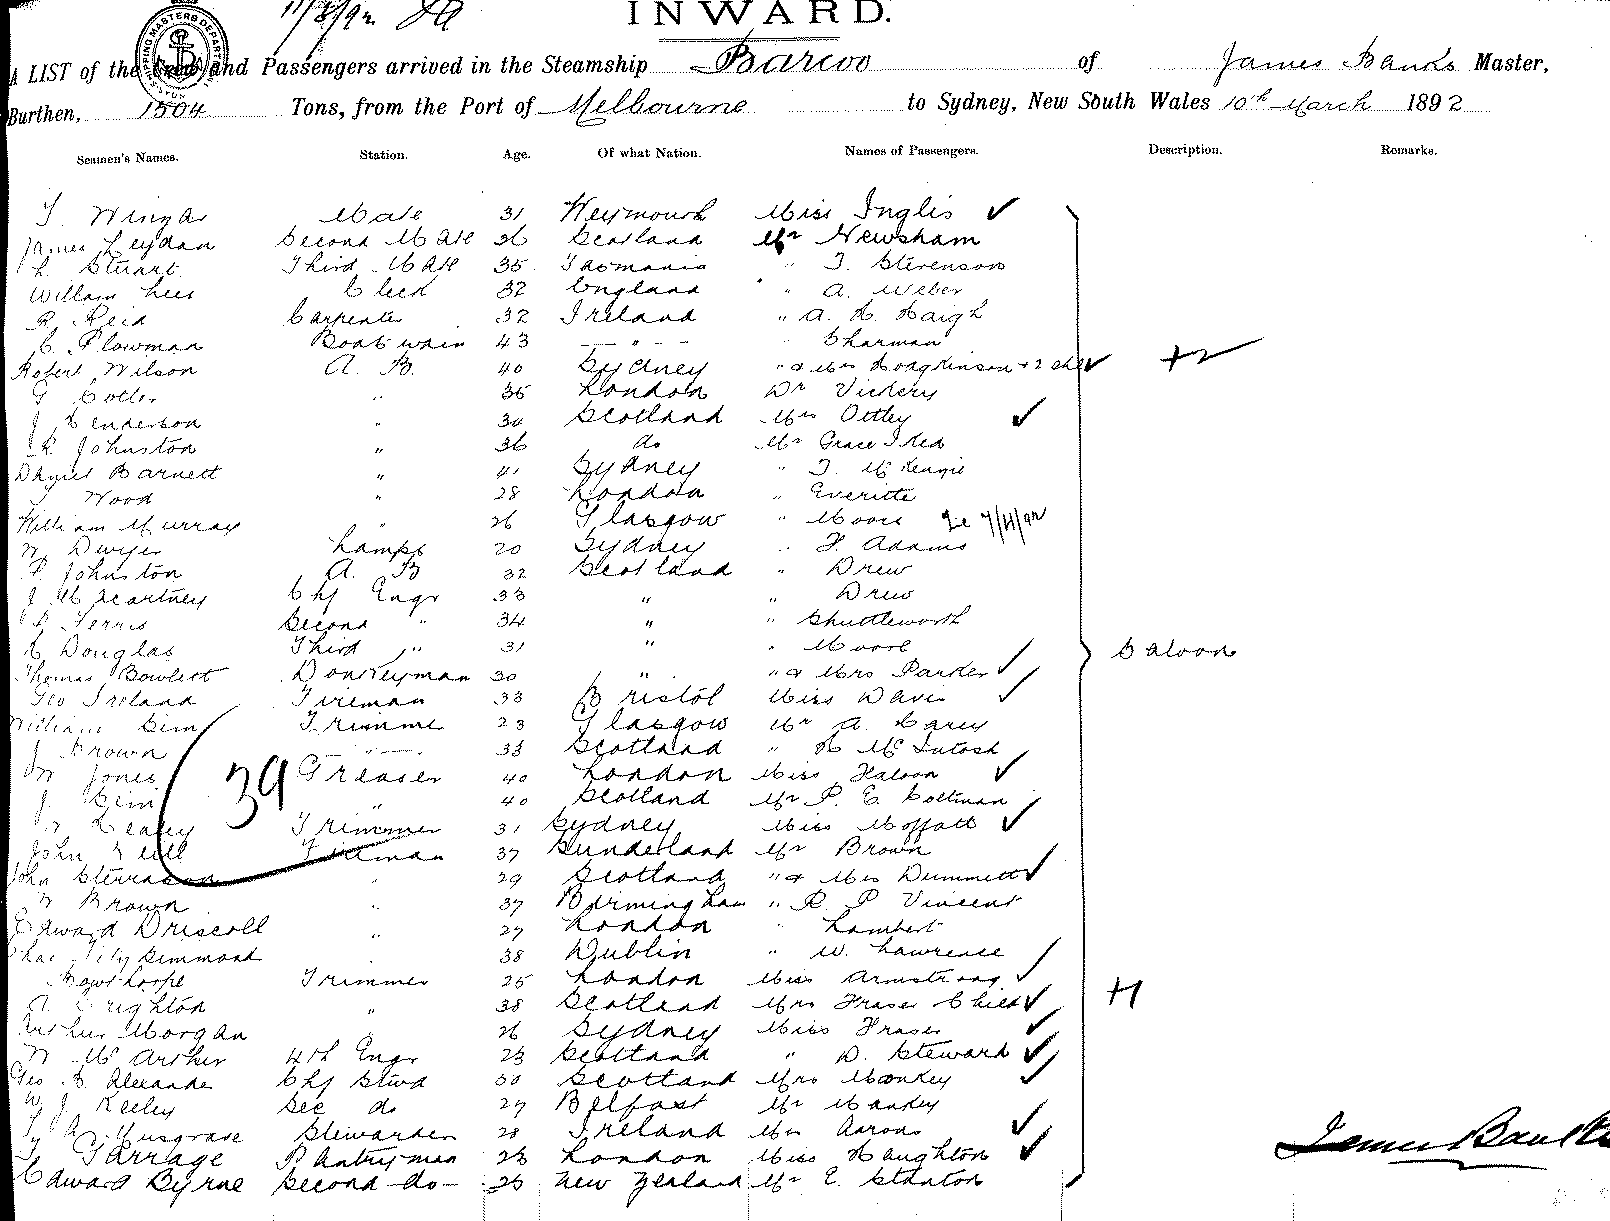 11/3/92
INWARD.
A LIST of the Crew and Passengers arrived in the Steamship Barcoo of James Banks Master,
Burthen, 1504 Tons, from the Port of Melbourne to Sydney, New South Wales 10th March 1892
Seamen's Names. Station. Age. Of what Nation. Names of Passengers. Description. Remarks.
Mate 31 Weymouth Miss Inglis
James Leydan Second Mate 36 Scotland Mr Newsham
Stuart Third Mate 35 Tasmania " T. Stevenson
William Lees Clerk 32 England " A. Weber
R. Reid Carpenter 32 Ireland " A. H. Haigh
C. Plowman Boatswain 43 — " — Charman
Robert Wilson A. B. 40 Sydney " & Mrs Hodgkinson + 2 chd +2
" London Dr Vickery
J. Henderson " 30 Scotland Mrs Ottley
R. Johnston " 36 do Mr Grace
Daniel Barnett " 41 Sydney " T. McKenzie
Wood " 28 London " Everitte
William Murray " 26 Glasgow " Moore
W. Dwyer Lamps 20 Sydney " F. Adams
P. Johnston A. B 32 Scotland " Drew
J. McCartney Chf Engr 33 " " Drew
Ferris Second " 34 " " Shuttleworth
C. Douglas Third " 31 " " Moore
Saloon
Thomas Bowlett Donkeyman 30 " " & Mrs Parker
Geo Ireland Fireman 33 Bristol Miss Davis
William Sim Trimmer 23 Glasgow Mr A. Carey
J. Brown " 33 Scotland " H McIntosh
W. Jones Greaser 40 London Miss
39
J. Sim " 40 Scotland Mr P. E. Coltman
Healey Trimmer 31 Sydney Miss Moffatt
John Fireman 37 Sunderland Mr Brown
John Stevenson " 29 Scotland " & Mrs Dummett
W Brown " 37 Birmingham " R. P Vincent
Edward Driscoll " 27 London " Lambert
Simmond 38 Dublin " W. Lawrence
Trimmer 25 London Miss Armstrong
A. Crighton " 38 Scotland Mrs Fraser Child
Arthur Morgan 26 Sydney Miss Fraser
W McArther 4th Engr 23 Scotland " D. Steward
Geo Alexander Chf Stwd 30 Scotland Mrs Monkey
W J Keeley Sec do 27 Belfast Mr
Musgrave Stewardess 28 Ireland Mrs Aarons
Garrage Pantryman 23 London Miss Haughton
Edward Byrne Second do 26 New Zealand Mr E. Stanton
James Banks